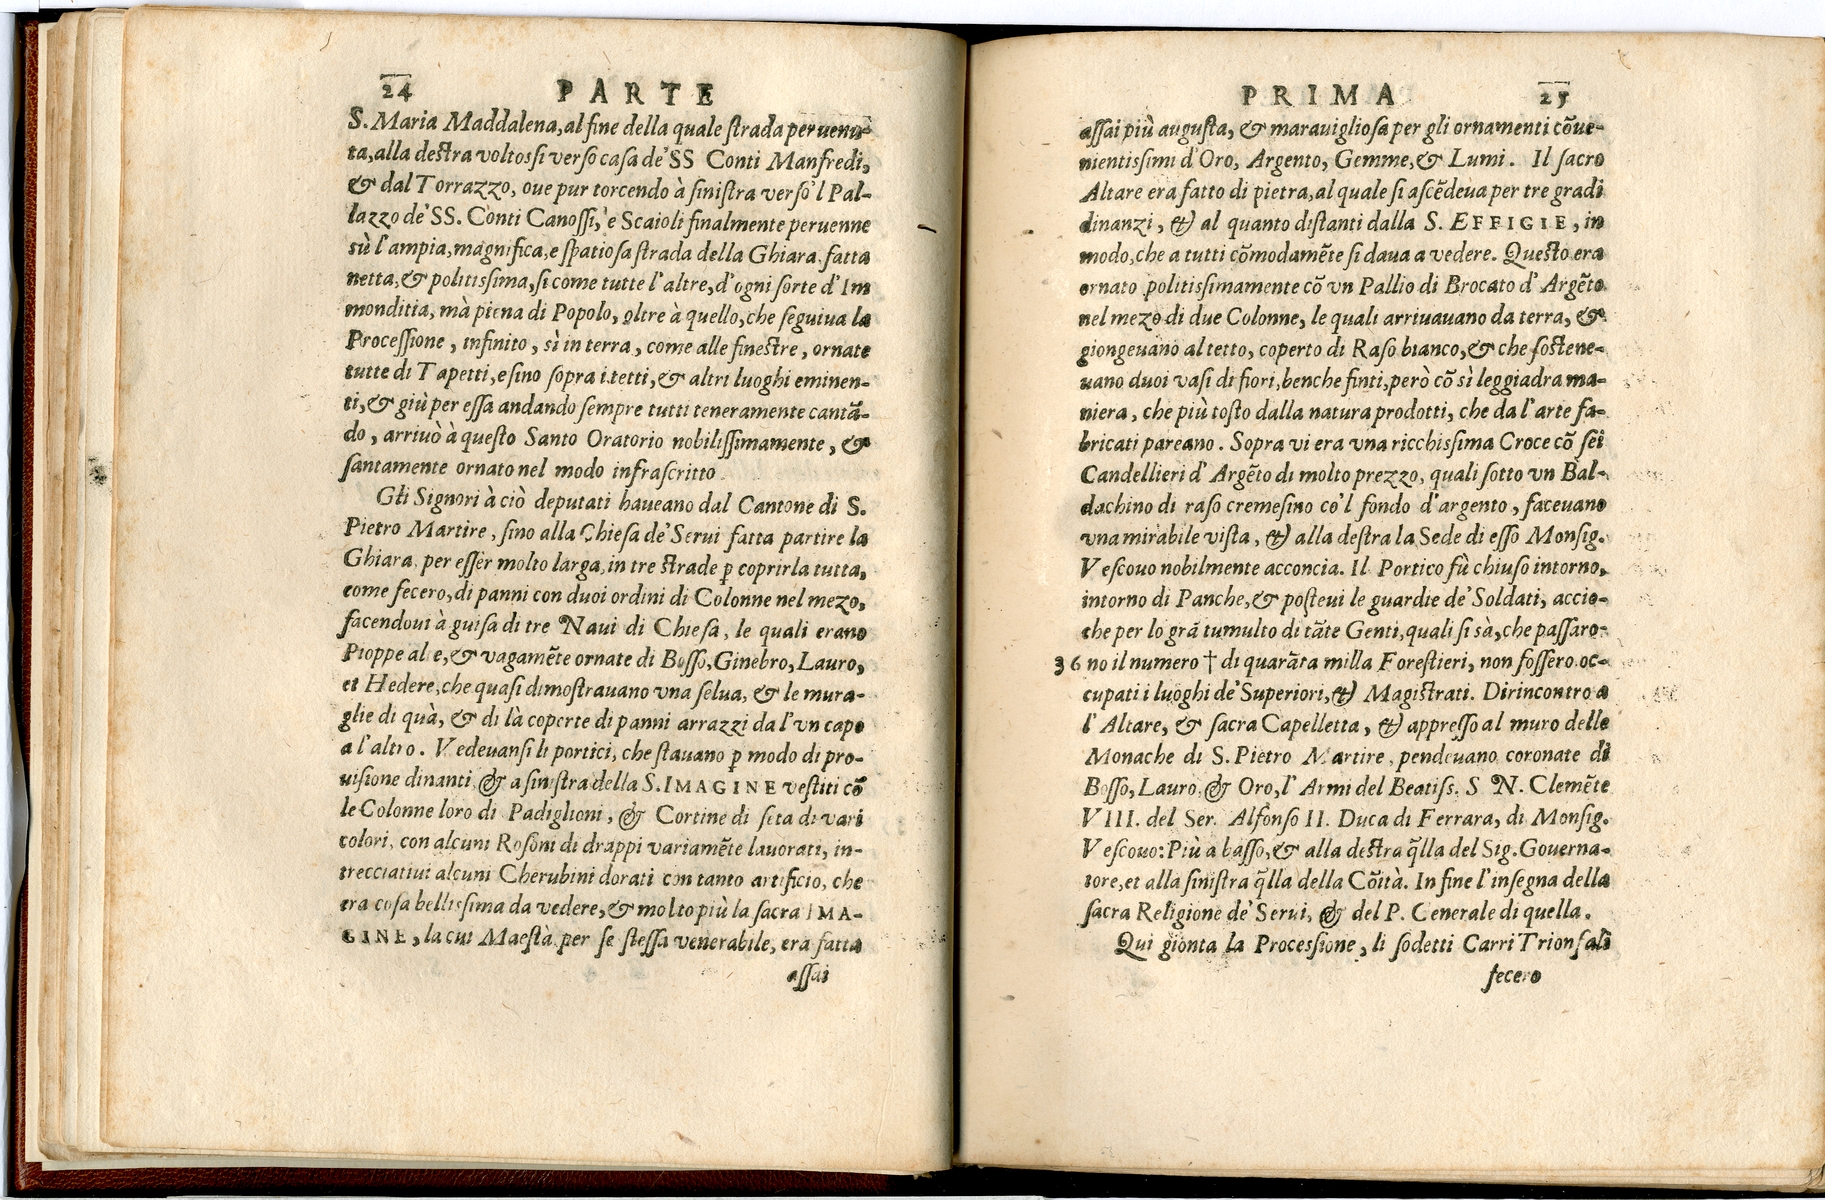 24 PARTE
S. Maria Maddalena, al fine della quale ſtrada peruenu-
ta, alla deſtra voltoſsi verſo caſa de' SS Conti Manfredi,
& dal Torrazzo, oue pur torcendo à ſiniſtra verſo'l Pal-
lazzo de' SS. Conti Canoſſi, e Scaioli finalmente peruenne
sù l'ampia, magnifica, e ſpatioſa ſtrada della Ghiara, fatta
netta, & politiſsima, ſi come tutte l'altre, d'ogni ſorte d'Im
monditia, mà piena di Popolo, oltre à quello, che ſeguiua la
Proceſſione, infinito, sì in terra, come alle fineſtre, ornate
tutte di Tapetti, e ſino ſopra i tetti, & altri luoghi eminen-
ti, & giù per eſſa andando ſempre tutti teneramente cantã-
do, arriuò à queſto Santo Oratorio nobiliſſimamente, &
ſantamente ornato nel modo infraſcritto
Gli Signori à ciò deputati haueano dal Cantone di S.
Pietro Martire, ſino alla Chieſa de' Serui fatta partire la
Ghiara, per eſſer molto larga, in tre ſtrade ꝑ coprirla tutta,
come fecero, di panni con duoi ordini di Colonne nel mezo,
facendoui à guiſa di tre Naui di Chieſa, le quali erano
Pioppe al e, & vagamẽte ornate di Boſſo, Ginebro, Lauro,
et Hedere, che quaſi dimoſtrauano vna ſelua, & le mura-
glie di quà, & di là coperte di panni arrazzi da l'vn capo
a l'altro. Vedeuanſi li portici, che ſtauano ꝑ modo di pro-
uiſione dinanti, & a ſiniſtra della S. IMAGINE veſtiti cõ
le Colonne loro di Padiglioni, & Cortine di ſeta di vari
colori, con alcuni Roſoni di drappi variamẽte lauorati, in-
trecciatiui alcuni Cherubini dorati con tanto artificio, che
era coſa belliſsima da vedere, & molto più la ſacra IMA-
GINE, la cui Maeſtà per ſe ſteſſa venerabile, era fatta
aſſai
PRIMA 25
aſſai più auguſta, & marauiglioſa per gli ornamenti cõue-
nientiſsimi d'Oro, Argento, Gemme, & Lumi. Il ſacro
Altare era fatto di pietra, al quale ſi aſcẽdeua per tre gradi
dinanzi, & al quanto diſtanti dalla S. EFFIGIE, in
modo, che a tutti cõmodamẽte ſi daua a vedere. Queſto era
ornato politiſsimamente cõ vn Pallio di Brocato d'Argẽto
nel mezo di due Colonne, le quali arriuauano da terra, &
giongeuano al tetto, coperto di Raſo bianco, & che ſoſtene-
uano duoi vaſi di fiori, benche finti, però cõ sì leggiadra ma-
niera, che più toſto dalla natura prodotti, che da l'arte fa-
bricati pareano. Sopra vi era vna ricchiſsima Croce cõ ſei
Candellieri d'Argẽto di molto prezzo, quali ſotto vn Bal-
dachino di raſo cremeſino co'l fondo d'argento, faceuano
vna mirabile viſta, & alla deſtra la Sede di eſſo Monſig.
Veſcouo nobilmente acconcia. Il Portico fù chiuſo intorno,
intorno di Panche, & poſteui le guardie de' Soldati, accio-
che per lo grã tumulto di tãte Genti, quali ſi sà, che paſſaro-
36 no il numero † di quarãta milla Foreſtieri, non foſſero oc-
cupati i luoghi de' Superiori, & Magiſtrati. Dirincontro a
l'Altare, & ſacra Capelletta, & appreſſo al muro delle
Monache di S. Pietro Martire, pendeuano coronate di
Boſſo, Lauro, & Oro, l'Armi del Beatiſs. S N. Clemẽte
VIII. del Ser. Alfonſo II. Duca di Ferrara, di Monſig.
Veſcouo: Più a baſſo, & alla deſtra q̃lla del Sig. Gouerna-
tore, et alla ſiniſtra q̃lla della Cõità. In fine l'inſegna della
ſacra Religione de' Serui, & del P. Generale di quella.
Qui gionta la Proceſsione, li ſodetti Carri Trionfali
fecero